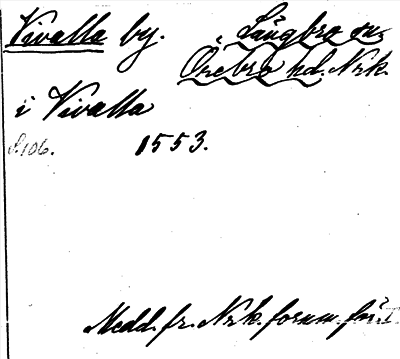 Vivalla by. Långbro sn.
Örebro hd. Nrk.
i Vivalla
S. 106. 1553.
Medd. fr. Nrk. fornm. för. I.